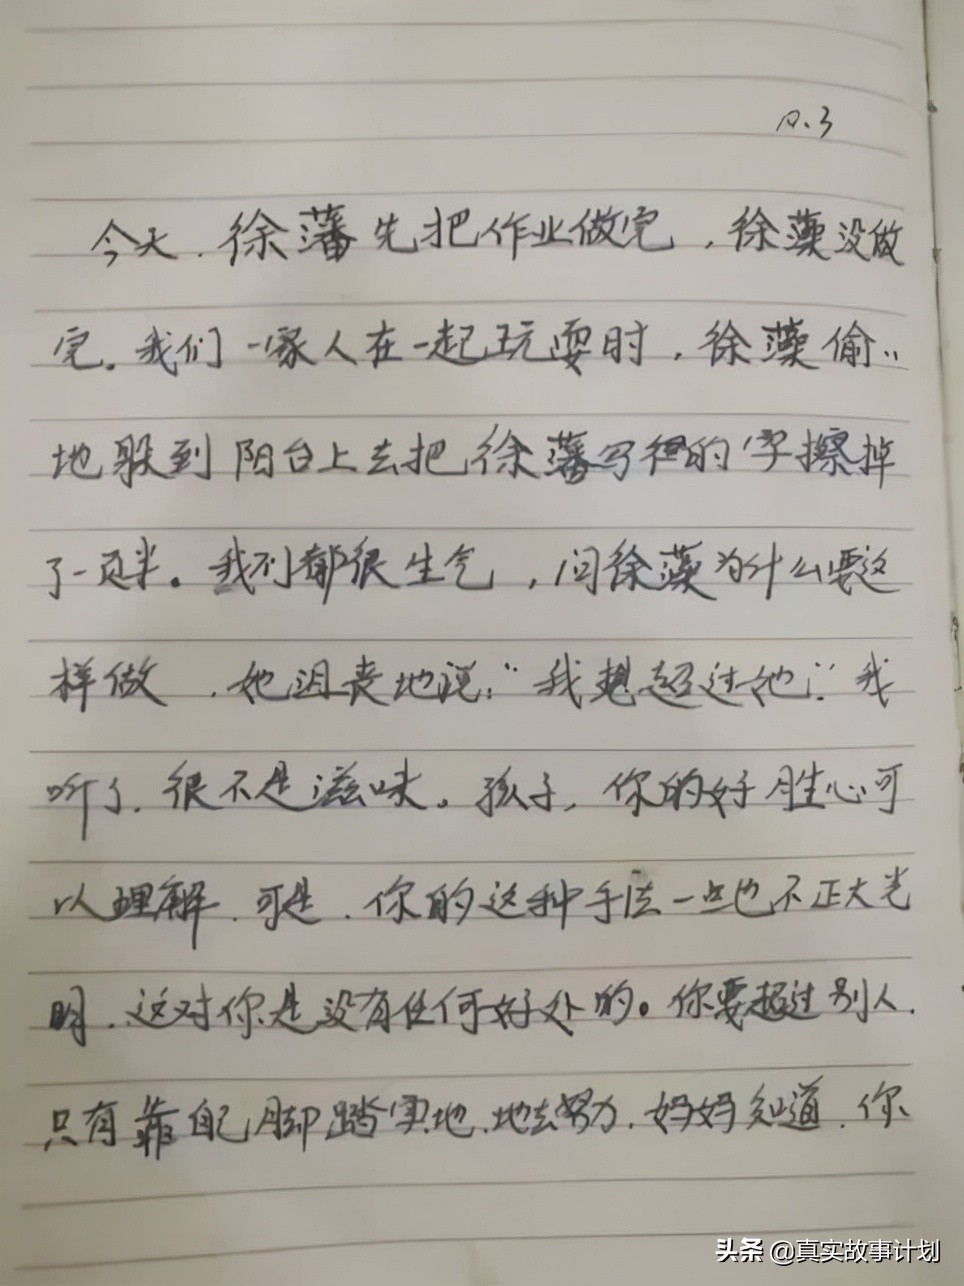 12.3
今天,徐藩先把作业做完,徐藻没做
完。我们一家人在一起玩耍时,徐藻偷〃
地躲到阳台上去把徐藩写的字擦掉
了一页半。我们都很生气,问徐藻为什么要这
样做,她沮丧地说:“我想超过她”我
听了,很不是滋味。孩子,你的好胜心可
以理解,可是,你的这种手法一点也不正大光
明,这对你是没有任何好处的。你要超过别人,
只有靠自己脚踏实地,地去努力,妈妈知道,你
头条 @真实故事计划